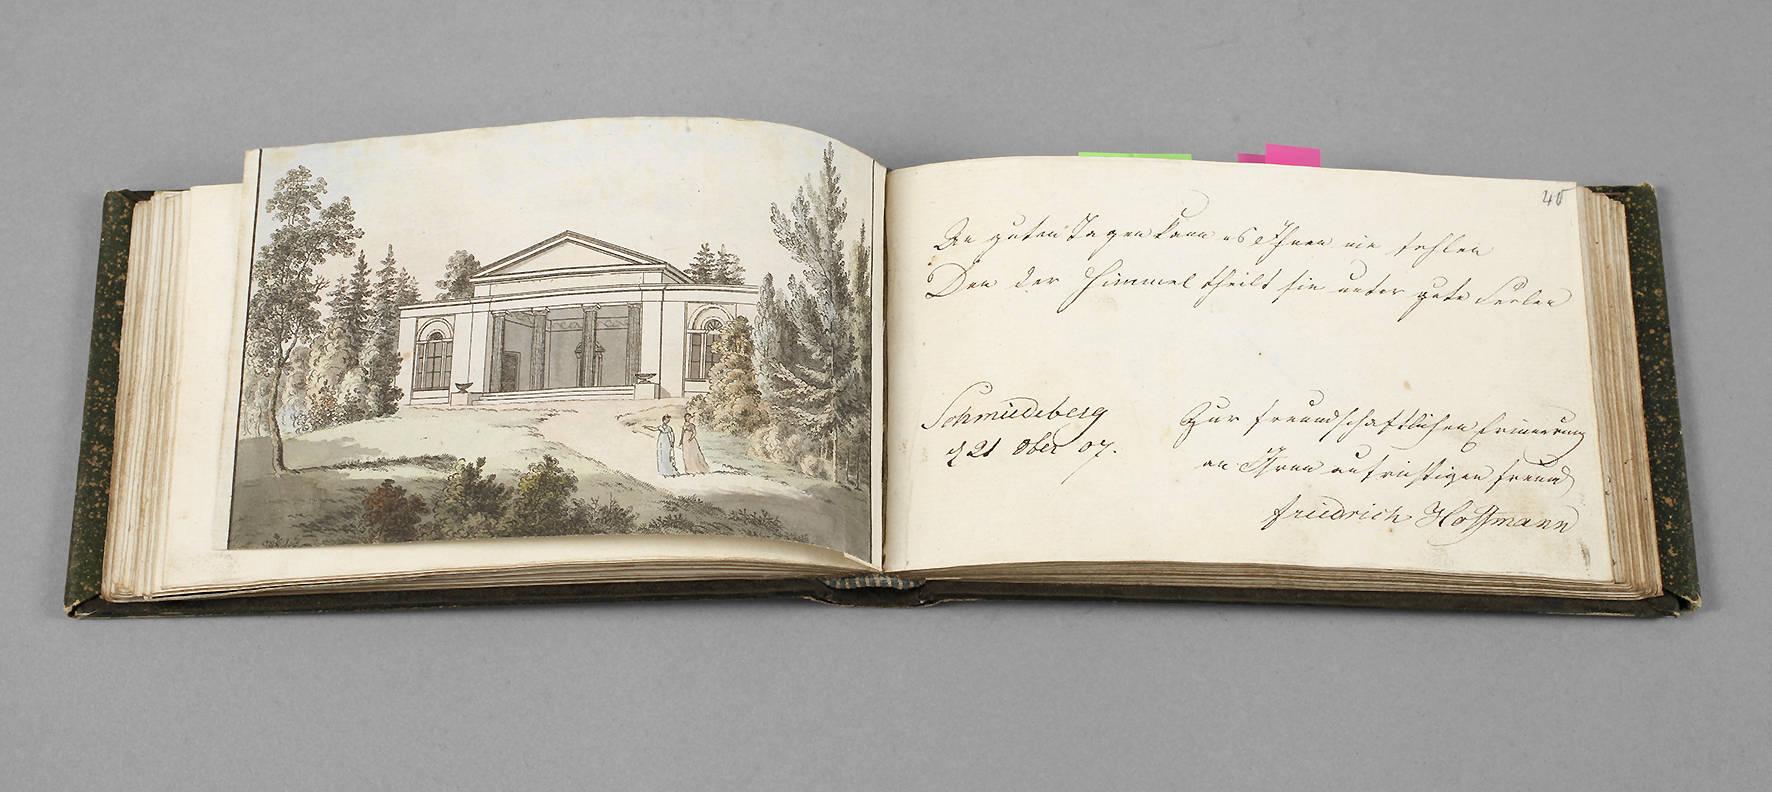 40
An guten Tagen kann es Ihnen nie fehlen
Den der Himmel theilt sie unter gute Seelen
Schmiedeberg
d 21 8ber 07.
Zur freundschaftlichen Erinnerung
an Ihren aufrichtigen Freund
Friedrich Hoffmann